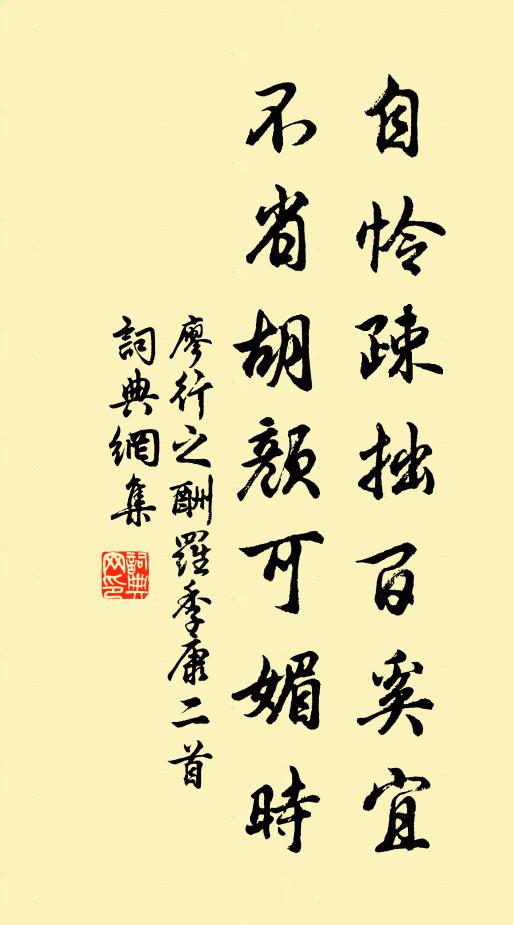 自怜疎拙百奚宜
不省胡顏可媚時
廖行之酬羅季康二首
詞典網集
詞典網印